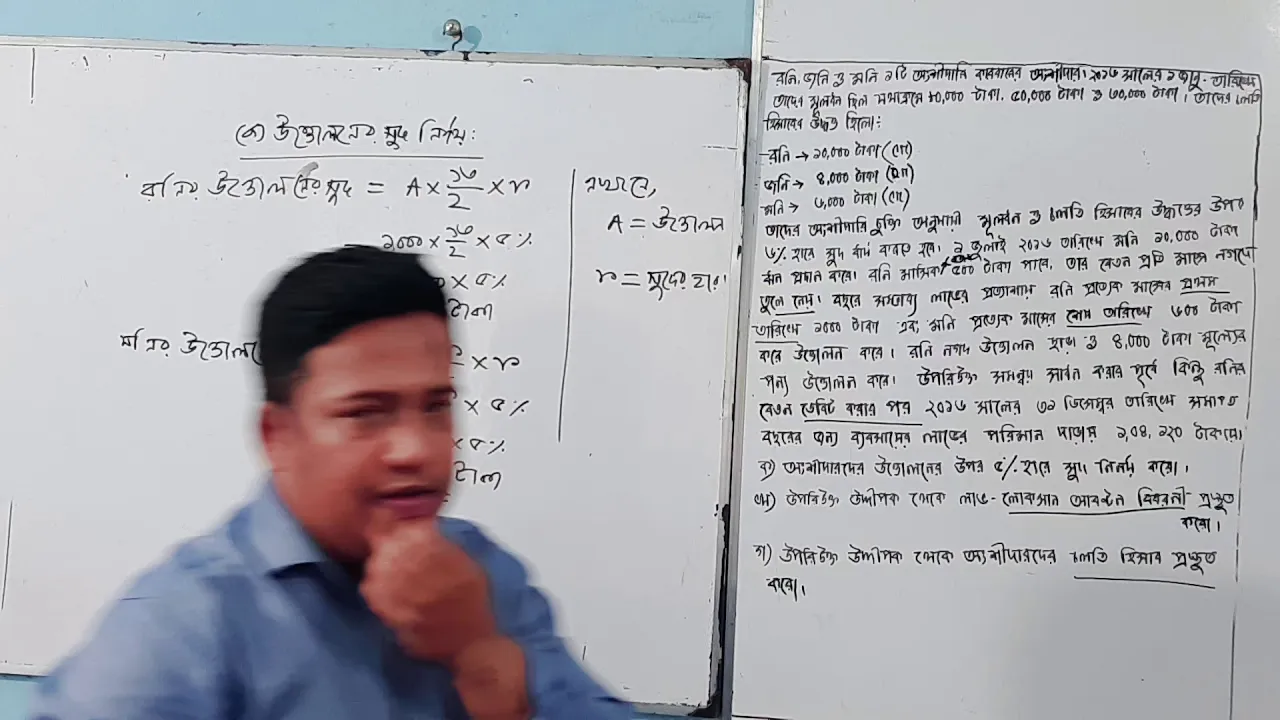 (ক) উত্তোলনের সুদ নির্ণয়:
রনির উত্তোলনের সুদ = A × ১৩/2 × r
= ২০০০ × ১৩/2 × ৫%
× ৫%
টাকা
মনির উত্তোলনে × r
× ৫%
× ৫%
টাকা
এখানে,
A = উত্তোলন
r = সুদের হার।
রনি, জনি ও মনি ৩টি অংশীদারি কারবারের অংশীদার। ২০১৬ সালের ১ জানু- তারিখে
তাদের মূলধন ছিল যথাক্রমে ৮০,০০০ টাকা, ৫০,০০০ টাকা ও ৩০,০০০ টাকা। তাদের চলতি
হিসাবের উদ্বৃত্ত ছিলো:
রনি → ১০,০০০ টাকা (ক্রে)
জনি → ৪,০০০ টাকা
মনি → ৬,০০০ টাকা (ক্রে)
তাদের অংশীদারি চুক্তি অনুযায়ী মূলধন ও চলতি হিসাবের উদ্বৃত্তের উপর
৬% হারে সুদ ধার্য করতে হবে। ১ জুলাই ২০১৬ তারিখে মনি ১০,০০০ টাকা
ঋন প্রদান করে। রনি মাসিক ৫০০ টাকা পাবে, তার বেতন প্রতি মাসে নগদে
তুলে নেয়। বছরে সম্ভাব্য লাভের প্রত্যাশায় রনি প্রত্যেক মাসের প্রথম
তারিখে ১০০০ টাকা এবং মনি প্রত্যেক মাসের শেষ তারিখে ৬০০ টাকা
করে উত্তোলন করে। রনি নগদ উত্তোলন ছাড়া ও ৪,০০০ টাকা মূল্যের
পন্য উত্তোলন করে। উপরিউক্ত সমন্বয় সাধন করার পূর্বে কিন্তু রনির
বেতন ডেবিট করার পর ২০১৬ সালের ৩১ ডিসেম্বর তারিখে সমাপ্ত
বছরের জন্য ব্যবসায়ের লাভের পরিমান দাড়ায় ১,০৪,২২০ টাকায়।
ক) অংশীদারদের উত্তোলনের উপর ৫% হারে সুদ নির্ণয় করো।
খ) উপরিউক্ত উদ্দীপক থেকে লাভ-লোকসান আবন্টন বিবরনী প্রস্তুত
করো।
গ) উপরিউক্ত উদ্দীপক থেকে অংশীদারদের চলতি হিসাব প্রস্তুত
করো।